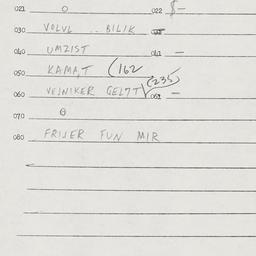 021 0 022 $-
030 VOLVL .. BILIK
040 UMZIST 041 -
050 KAMAT (162
060 VEJNIKER GELTT (235) 061 -
070 θ
080 FRIJER FUN MIR